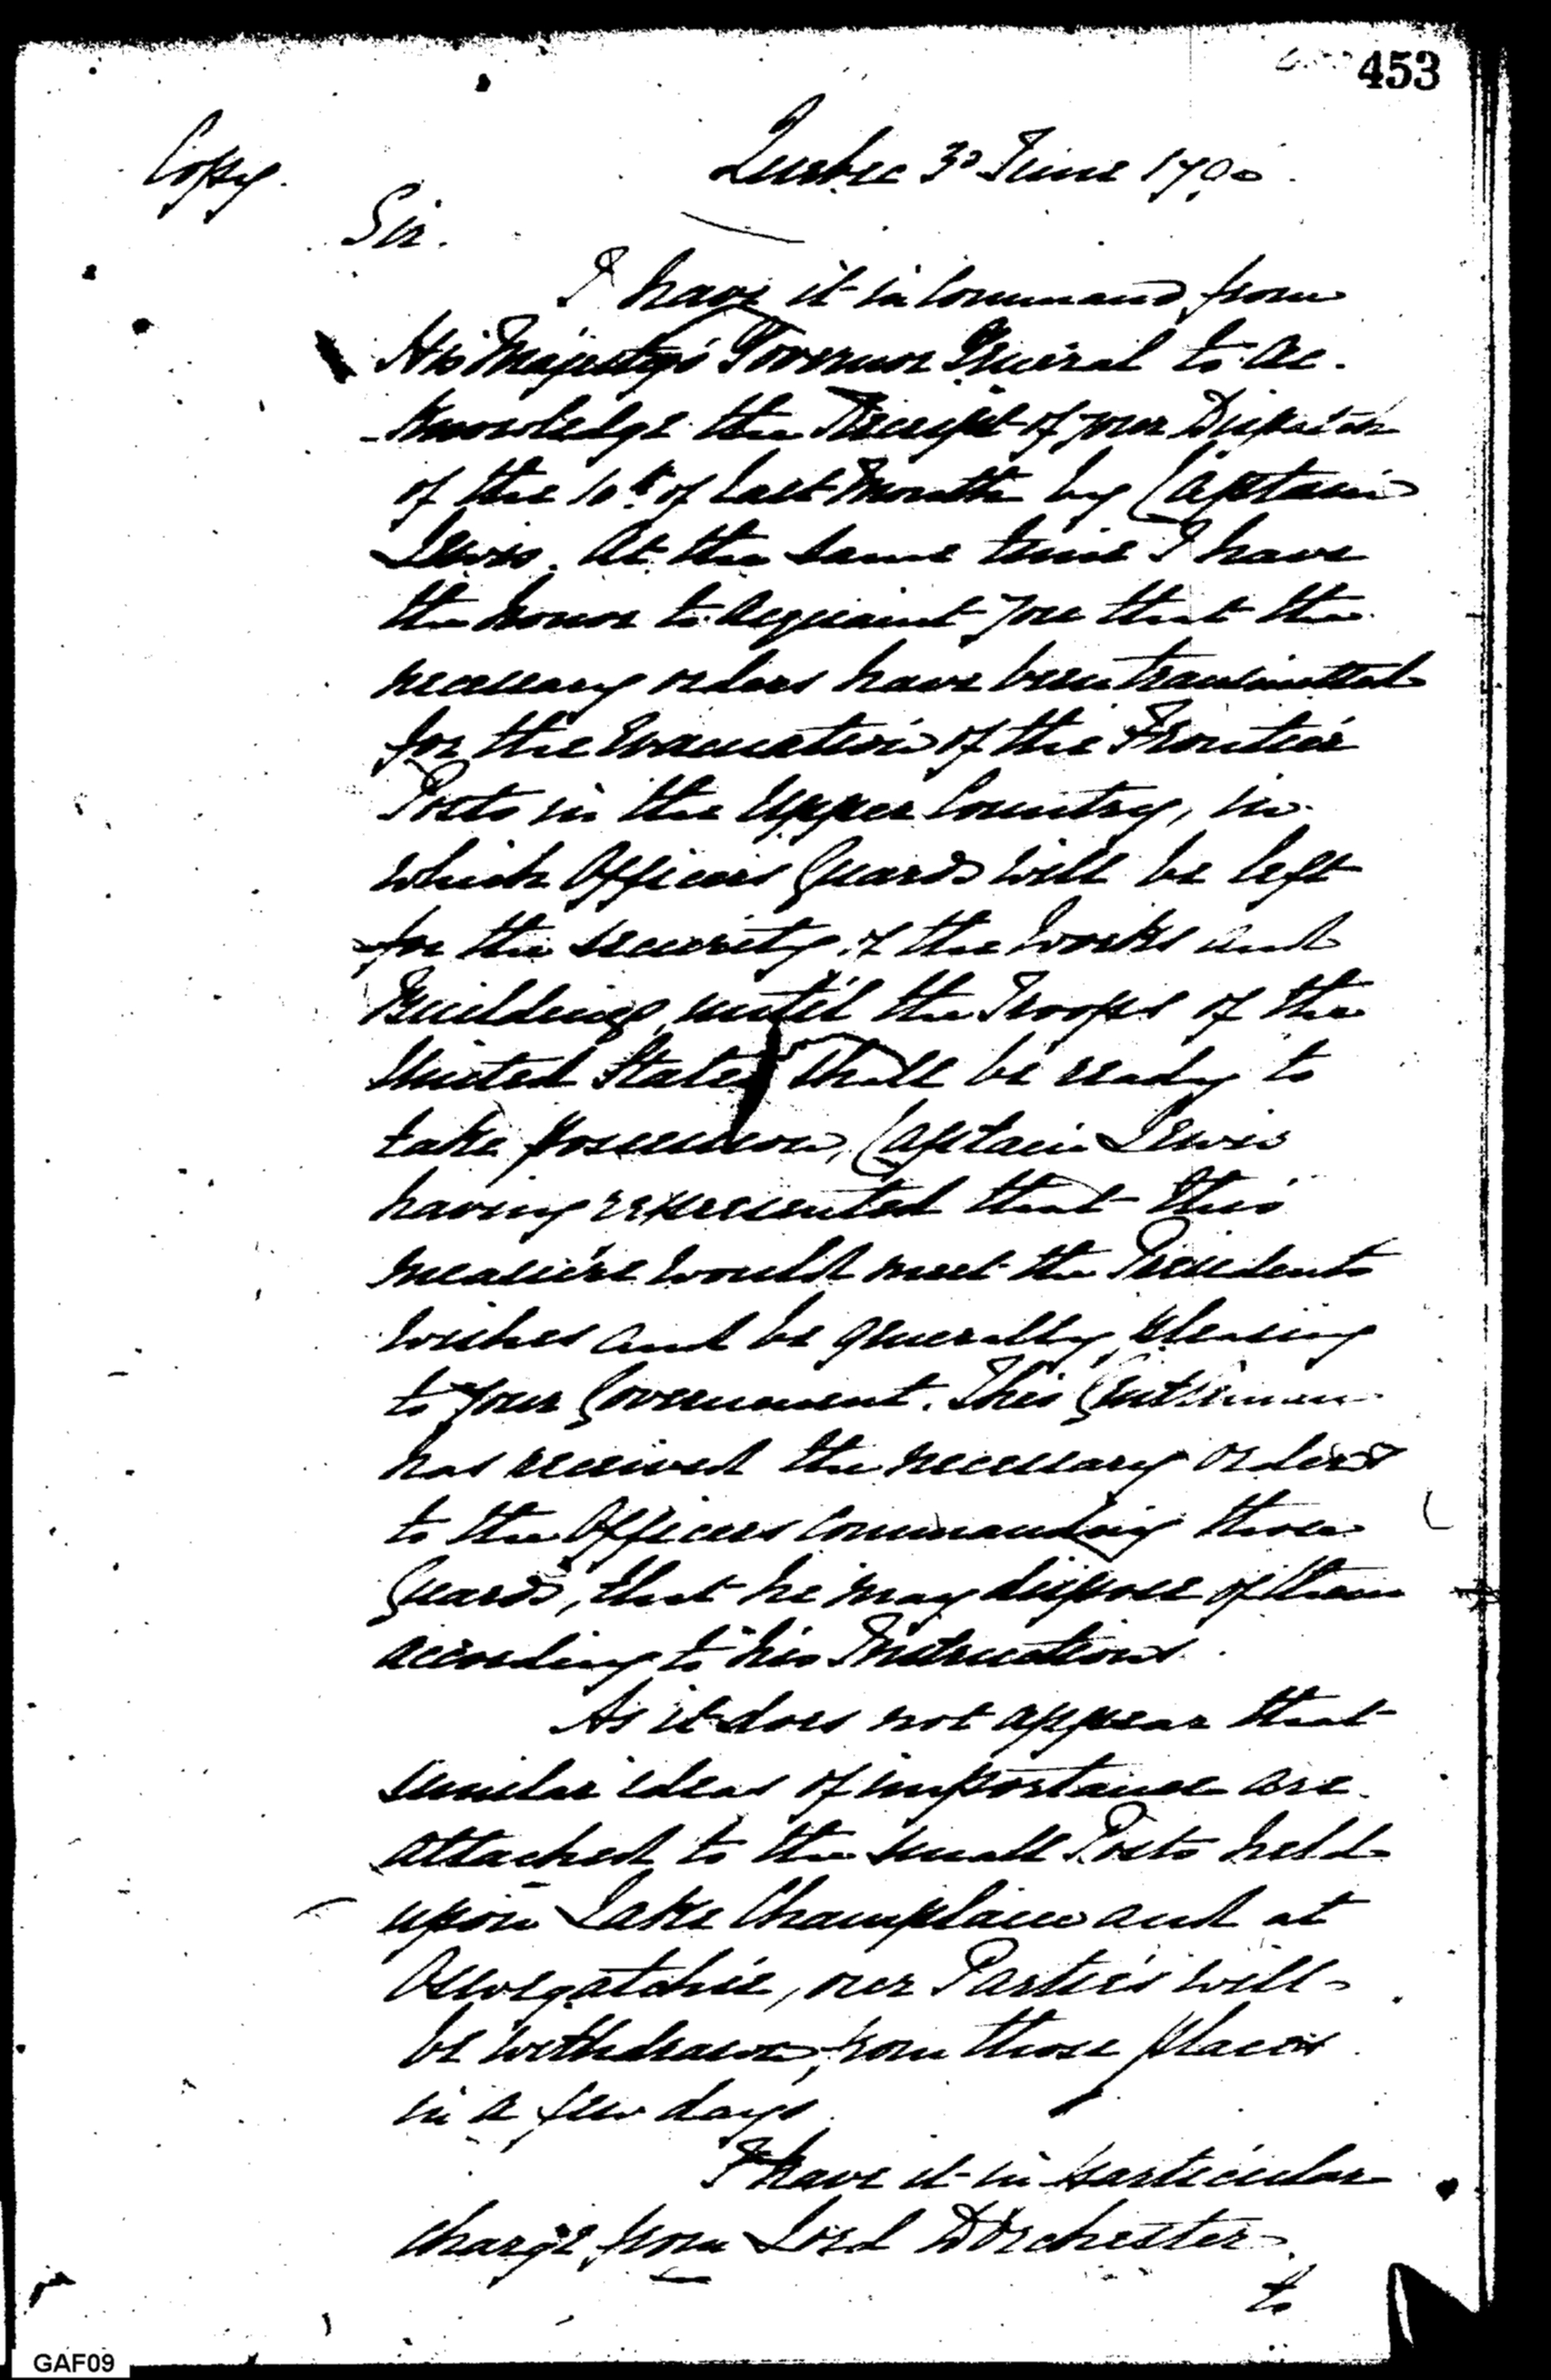 453
Copy.
Quebec 3d June 1796.
Sir.
I have it in Command from
His Majesty's Governor General to ac-
-knowledge the Receipt of your Dispatch
of the 10th of last Month by Captain
Lewis. At the same time I have
the honor to acquaint you that the
necessary orders have been transmitted
for the Evacuation of the Frontier
Posts in the Upper Country, in
which Officers Guards will be left
for the security of the Works and
Buildings until the Troops of the
United States shall be ready to
take possession, Captain Lewis
having represented that this
measure would meet the Presidents
wishes and be generally pleasing
to your Government. This Gentleman
has received the necessary orders
to the Officers Commanding those
Guards, that he may dispose of them
according to his Instructions.
As it does not appear that
similar ideas of importance are
attached to the small Posts held
upon Lake Champlain and at
Oswegatchie, our Parties will
be withdrawn from those places
in a few days.
I have it in particular
charge from Lord Dorchester
to
GAF09